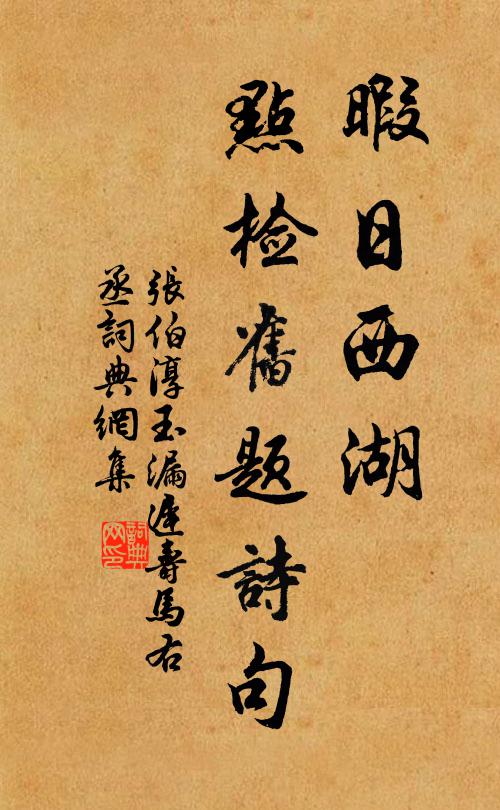 暇日西湖
點檢舊題詩句
張伯淳玉漏遲壽馬右
丞詞典網集
詞典網印